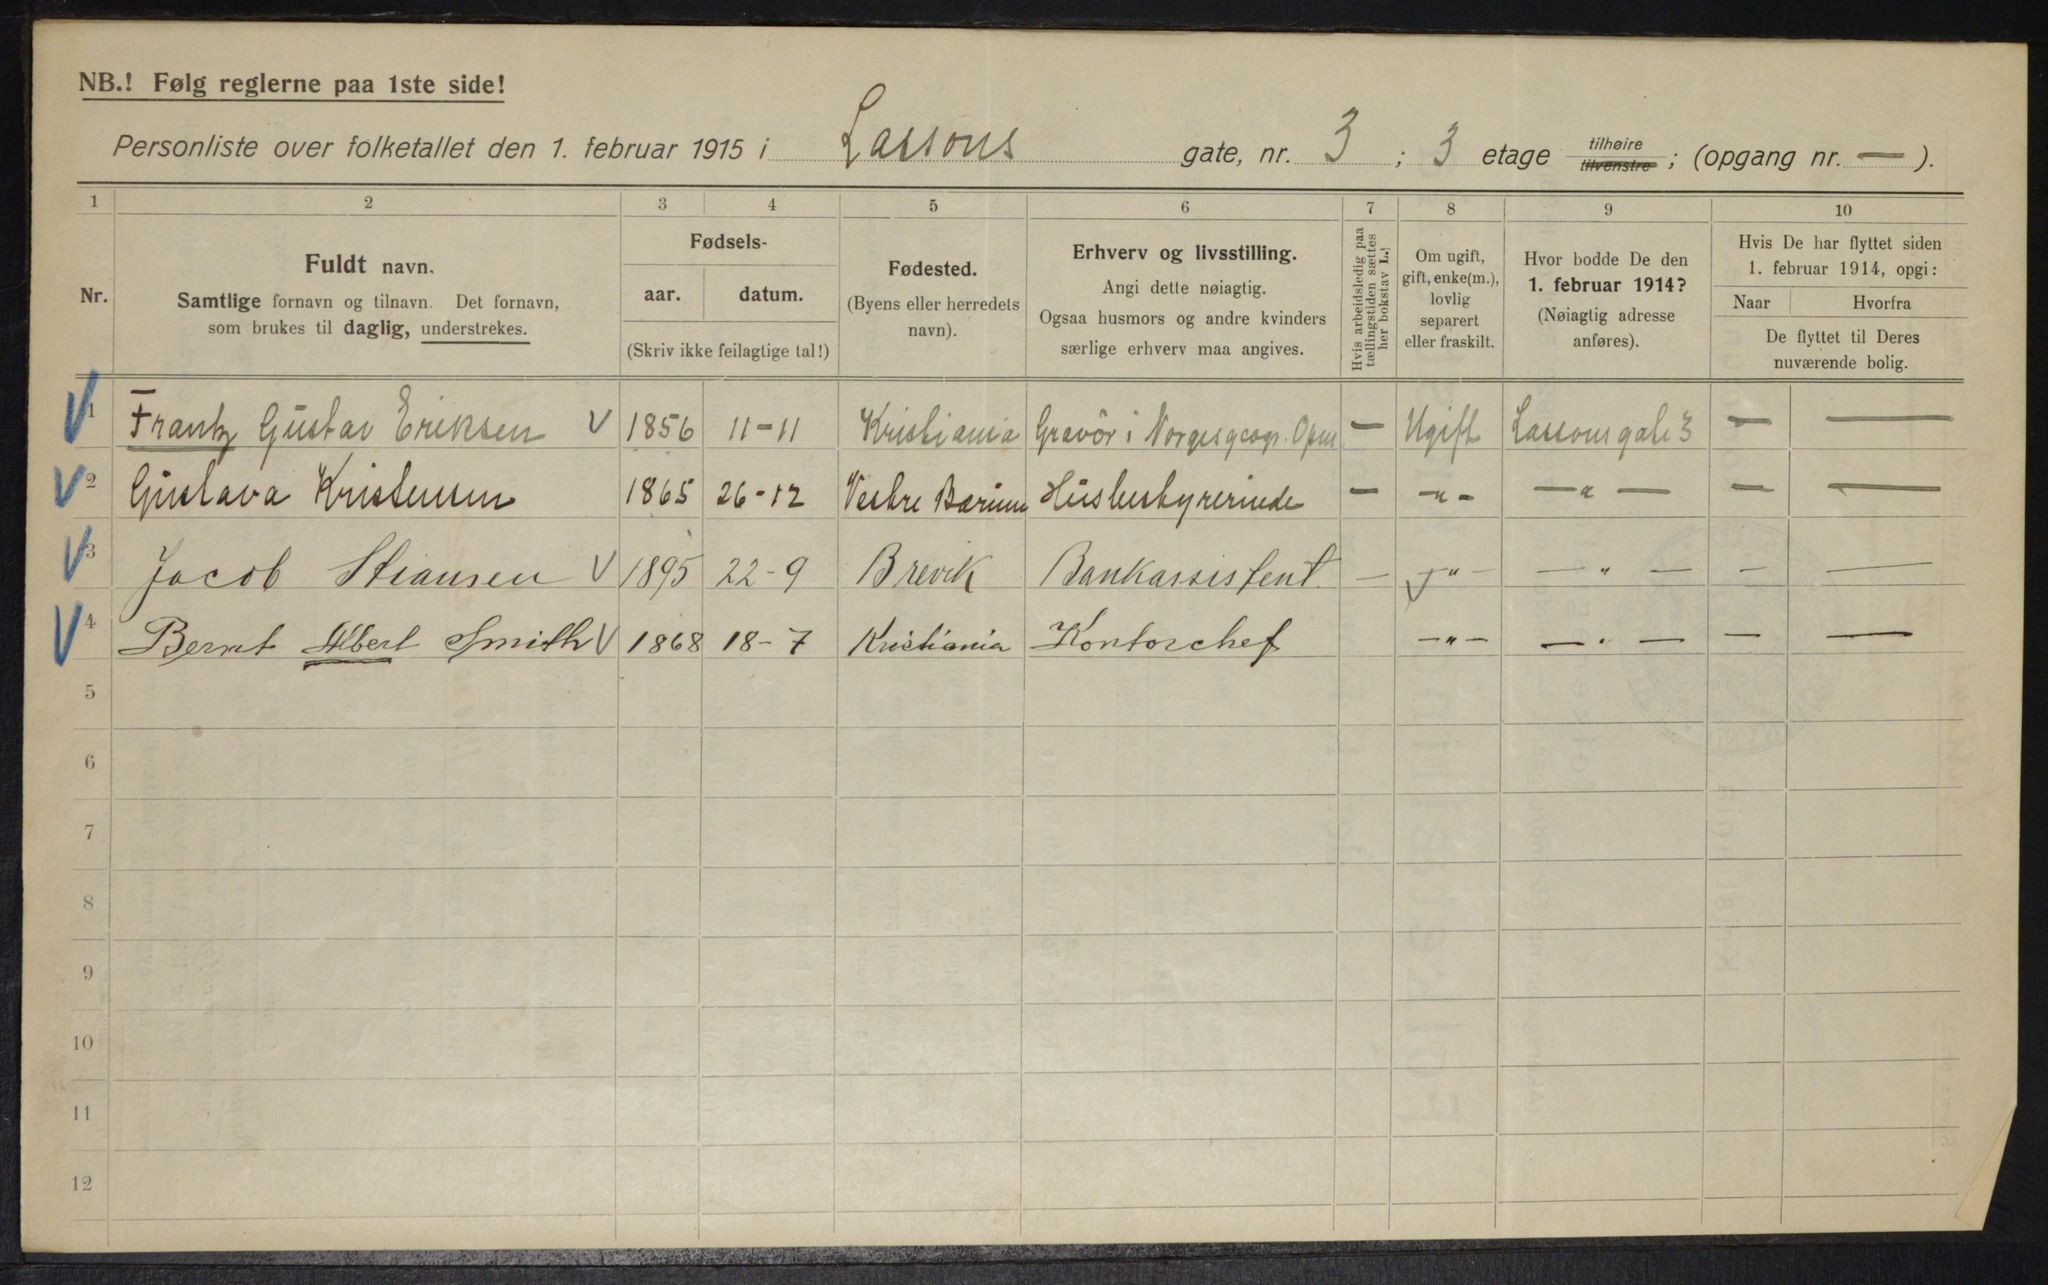 NB.! Følg reglerne paa 1ste side!
Personliste over folketallet den 1. februar 1915 i Lassons gate, nr. 3 ; 3 etage tilhøire tilvenstre ; (opgang nr. — ).
1 2 3 4 5 6 7 8 9 10
Nr.
Fuldt navn.
Samtlige fornavn og tilnavn. Det fornavn,
som brukes til daglig, understrekes.
Fødsels-
aar. datum.
(Skriv ikke feilagtige tal!)
Fødested.
(Byens eller herredets
navn).
Erhverv og livsstilling.
Angi dette nøiagtig.
Ogsaa husmors og andre kvinders
særlige erhverv maa angives.
Hvis arbeidsledig paa
tællingstiden sættes
her bokstav L.
Om ugift,
gift, enke(m.),
lovlig
separert
eller fraskilt.
Hvor bodde De den
1. februar 1914?
(Nøiagtig adresse
anføres).
Hvis De har flyttet siden
1. februar 1914, opgi:
Naar Hvorfra
De flyttet til Deres
nuværende bolig.
1 Frantz Gustav Eriksen V 1856 11-11 Kristiania Gravör i Norges geogr. Opm — Ugift Lassonsgate 3 — —
2 Gustava Kristensen 1865 26-12 Vestre Bærum Husbestyrerinde — -"- — " — — —
3 Jacob Stiansen V 1895 22-9 Brevik Bankassistent. — -"- — " — — —
4 Bernt Albert Smith V 1868 18-7 Kristiania Kontorchef -"- — " — — —
5
6
7
8
9
10
11
12